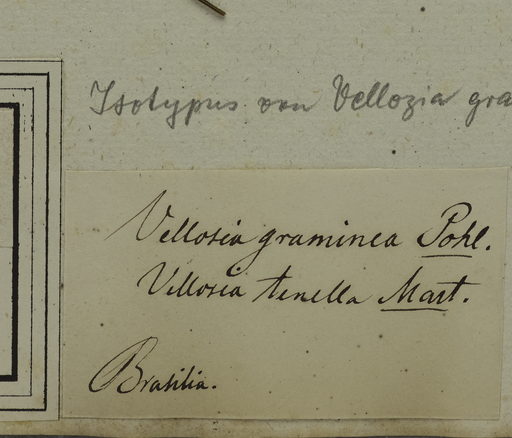 Isotypus von Vellozia gra
Vellosia graminea Pohl.
Vellosia tenella Mart.
Brasilia.